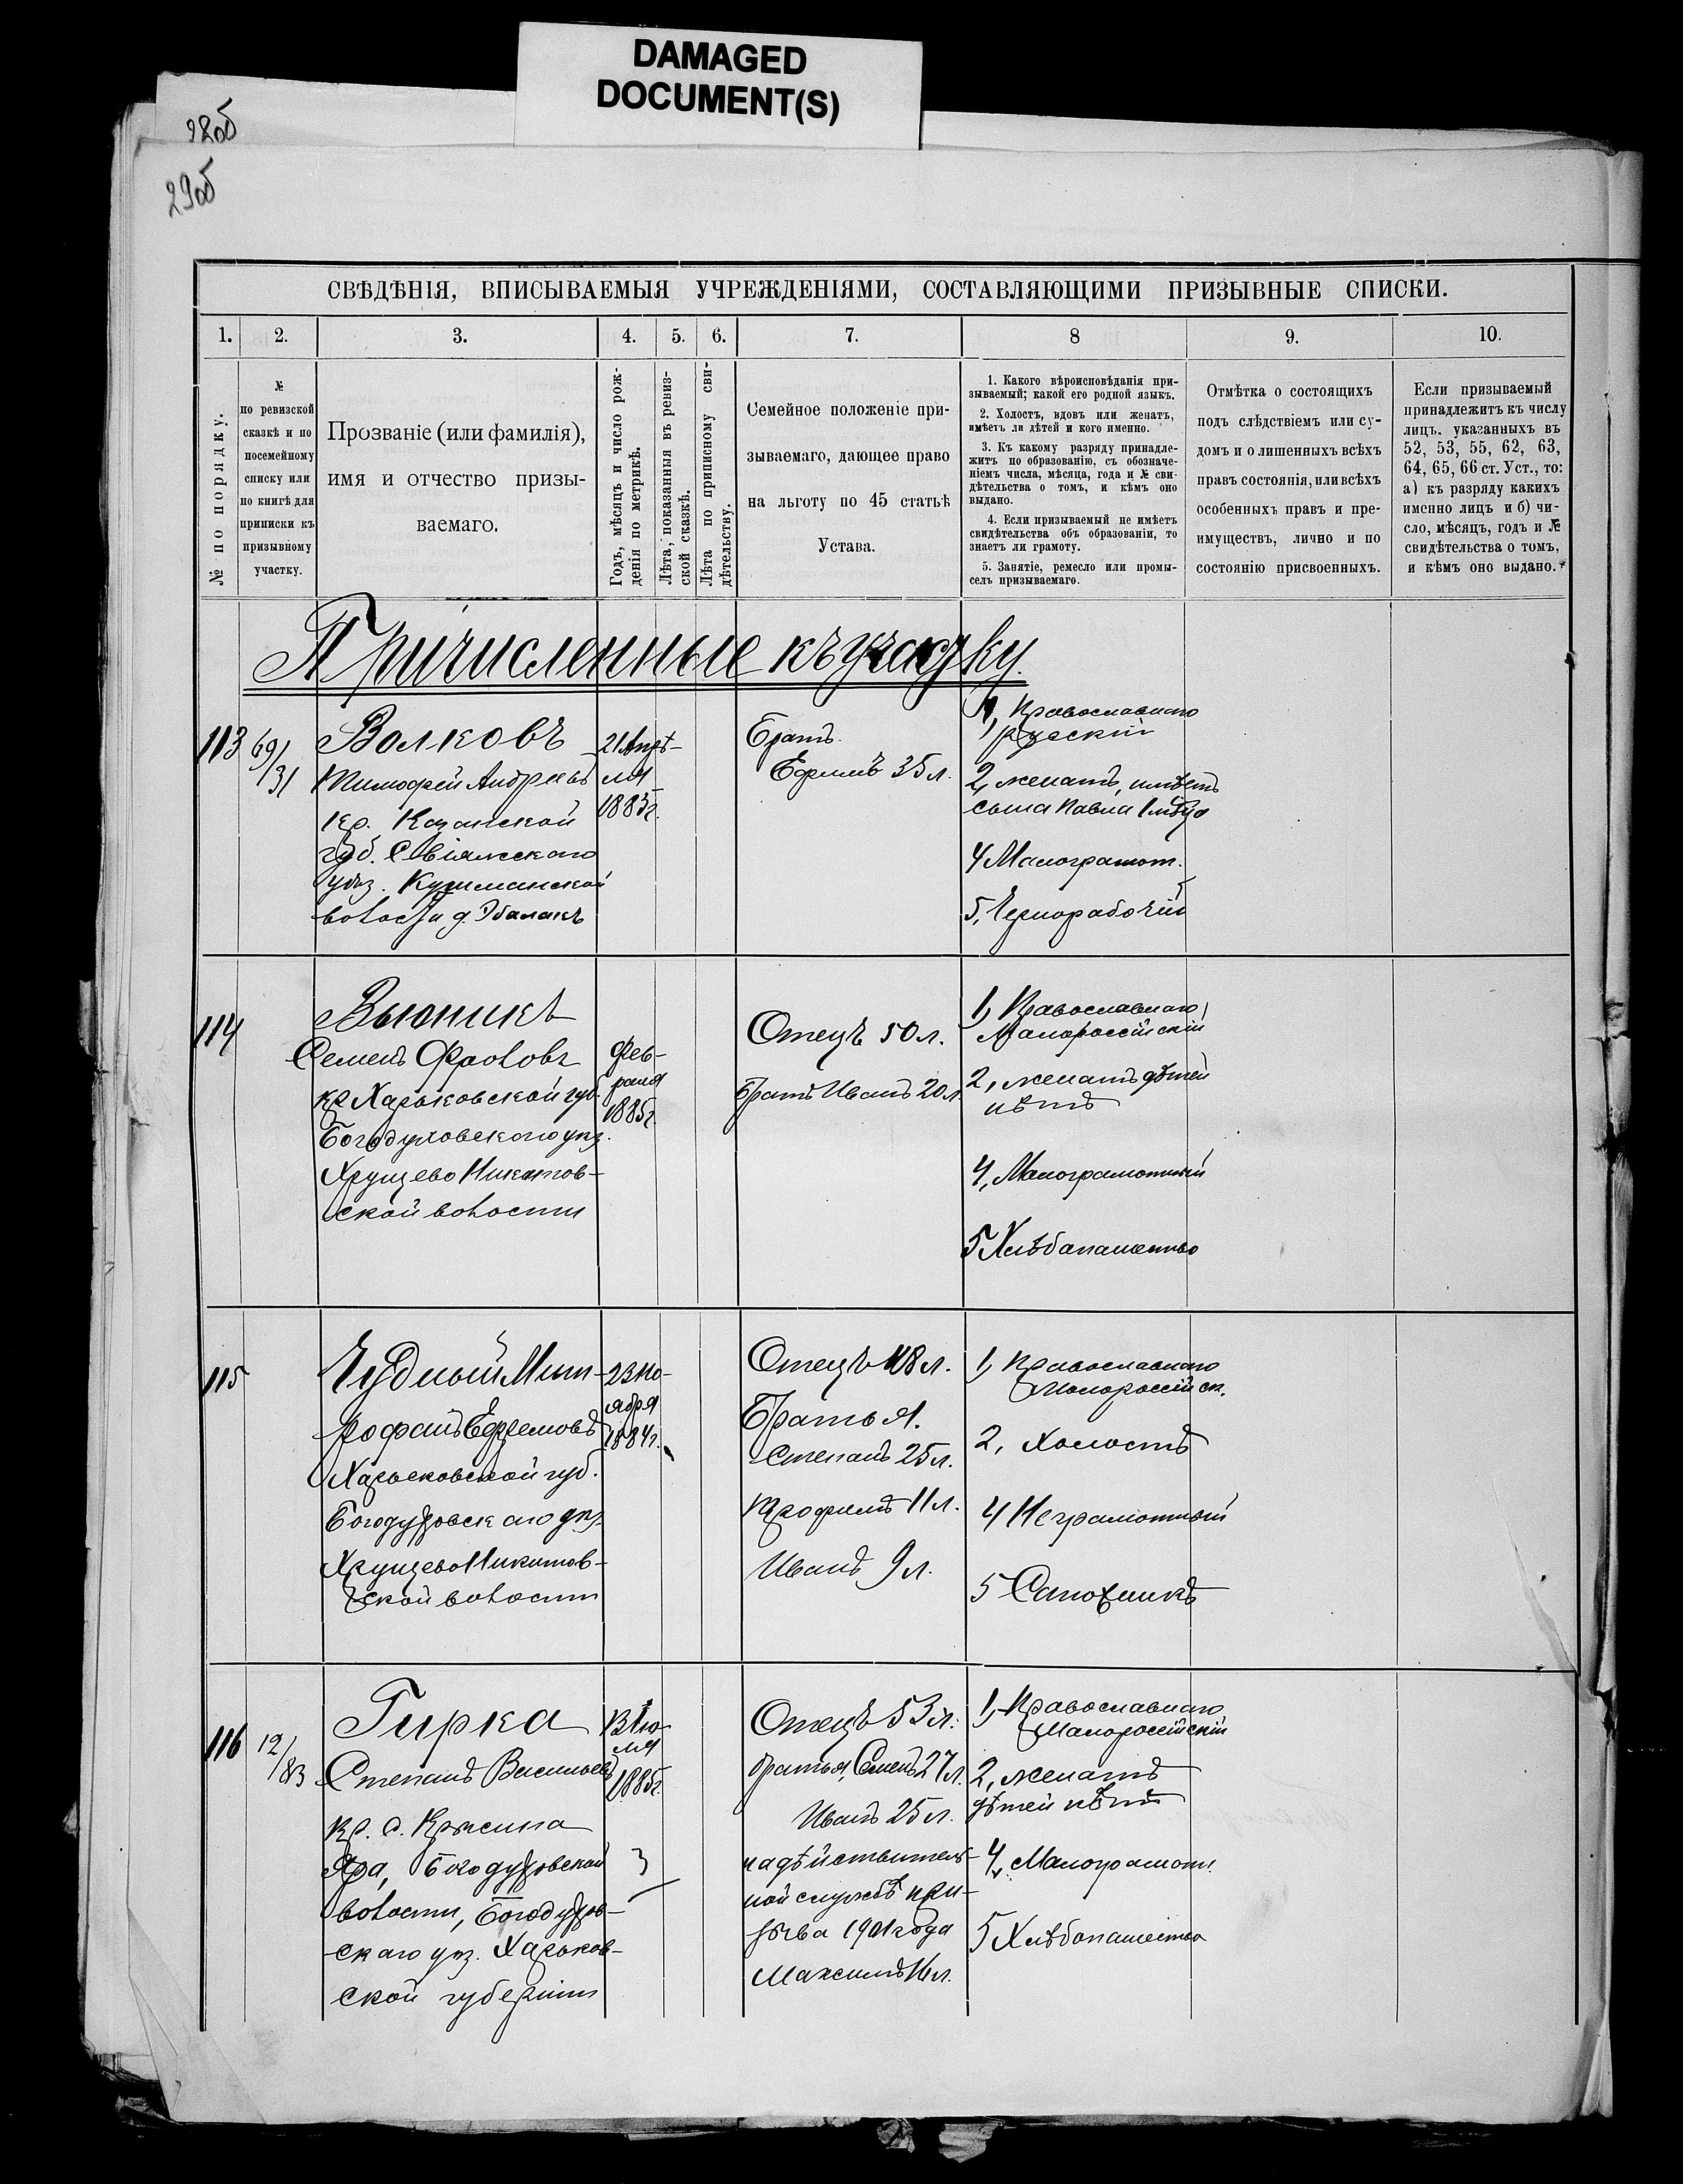 DAMAGED
DOCUMENT(S)
28об
29об
СВѢДѢНІЯ, ВПИСЫВАЕМЫЯ УЧРЕЖДЕНІЯМИ, СОСТАВЛЯЮЩИМИ ПРИЗЫВНЫЕ СПИСКИ.
1. 2. 3. 4. 5. 6. 7. 8 9. 10.
№ по порядку.
№
по ревизской
сказкѣ и по
посемейному
списку или
по книгѣ для
приписки къ
призывному
участку.
Прозваніе (или фамилія),
имя и отчество призы-
ваемаго.
Годъ, мѣсяцъ и число рож-
денія по метрикѣ.
Лѣта, показанныя въ ревиз-
ской сказкѣ.
Лѣта по приписному сви-
дѣтельству.
Семейное положеніе при-
зываемаго, дающее право
на льготу по 45 статьѣ
Устава.
1. Какого вѣроисповѣданія при-
зываемый; какой его родной языкъ.
2. Холостъ, вдовъ или женатъ,
имѣетъ ли дѣтей и кого именно.
3. Къ какому разряду принадле-
житъ по образованію, съ обозначе-
ніемъ числа, мѣсяца, года и № сви-
дѣтельства о томъ, и кѣмъ оно
выдано.
4. Если призываемый не имѣетъ
свидѣтельства объ образованіи, то
знаетъ ли грамоту.
5. Занятіе, ремесло или промы-
селъ призываемаго.
Отмѣтка о состоящихъ
подъ слѣдствіемъ или су-
домъ и о лишенныхъ всѣхъ
правъ состоянія, или всѣхъ
особенныхъ правъ и пре-
имуществъ, лично и по
состоянію присвоенныхъ.
Если призываемый
принадлежитъ къ числу
лицъ, указанныхъ въ
52, 53, 55, 62, 63,
64, 65, 66 ст. Уст., то:
а) къ разряду какихъ
именно лицъ и б) чи-
сло, мѣсяцъ, годъ и №
свидѣтельства о томъ,
и кѣмъ оно выдано.
Причисленные къ участку.
113
69/31
Волковъ
Тимофей Андреевъ
кр. Казанской
губ. Свіяжскаго
уѣз.
волости д.
21 Апрѣ-
ля
1883г.
Братъ
Ефимъ 35 л.
1, Православнаго
русскій
2, женатъ, имѣетъ
сына Павла 1 мѣсяца
4 Малограмот.
5, Чернорабочій
114
Вьюникъ
Семенъ Фроловъ
кр Харьковской губ.
Богодуховскаго уѣз.
Хрущево Никитов-
ской волости
Фев-
раля
1885г.
Отецъ 50 л.
Братъ Иванъ 20 л.
1, Православнаго
Малороссійскій
2, женатъ дѣтей
нѣтъ
4, Малограмотный
5 Хлѣбопашество
115
Чудный Мит-
рофанъ Ефремовъ
Харьковской губ.
Богодуховскаго уѣз.
Хрущево Никитов-
ской волости
23 Но-
ября
1884г.
Отецъ 48 л.
Братья.
Степанъ 25 л.
Трофимъ 11 л.
Иванъ 9 л.
1, Православнаго
Малороссійск.
2, Холостъ
4 Неграмотный
5 Сапожникъ
116
12/83
Гирка
Степанъ Васильевъ
кр. с. Крысина
Яра, Богодуховской
волости, Богодухов-
скаго уѣз. Харьков-
ской губерніи
1885г.
Отецъ 53 л.
братья, Семенъ 27 л.
Иванъ 25 л.
на дѣйствитель-
ной службѣ при-
зыва 1901 года
Максимъ 16 л.
1, Православнаго
Малороссійскій
2, женатъ
дѣтей нѣтъ
4, Малограмотн.
5 Хлѣбопашество